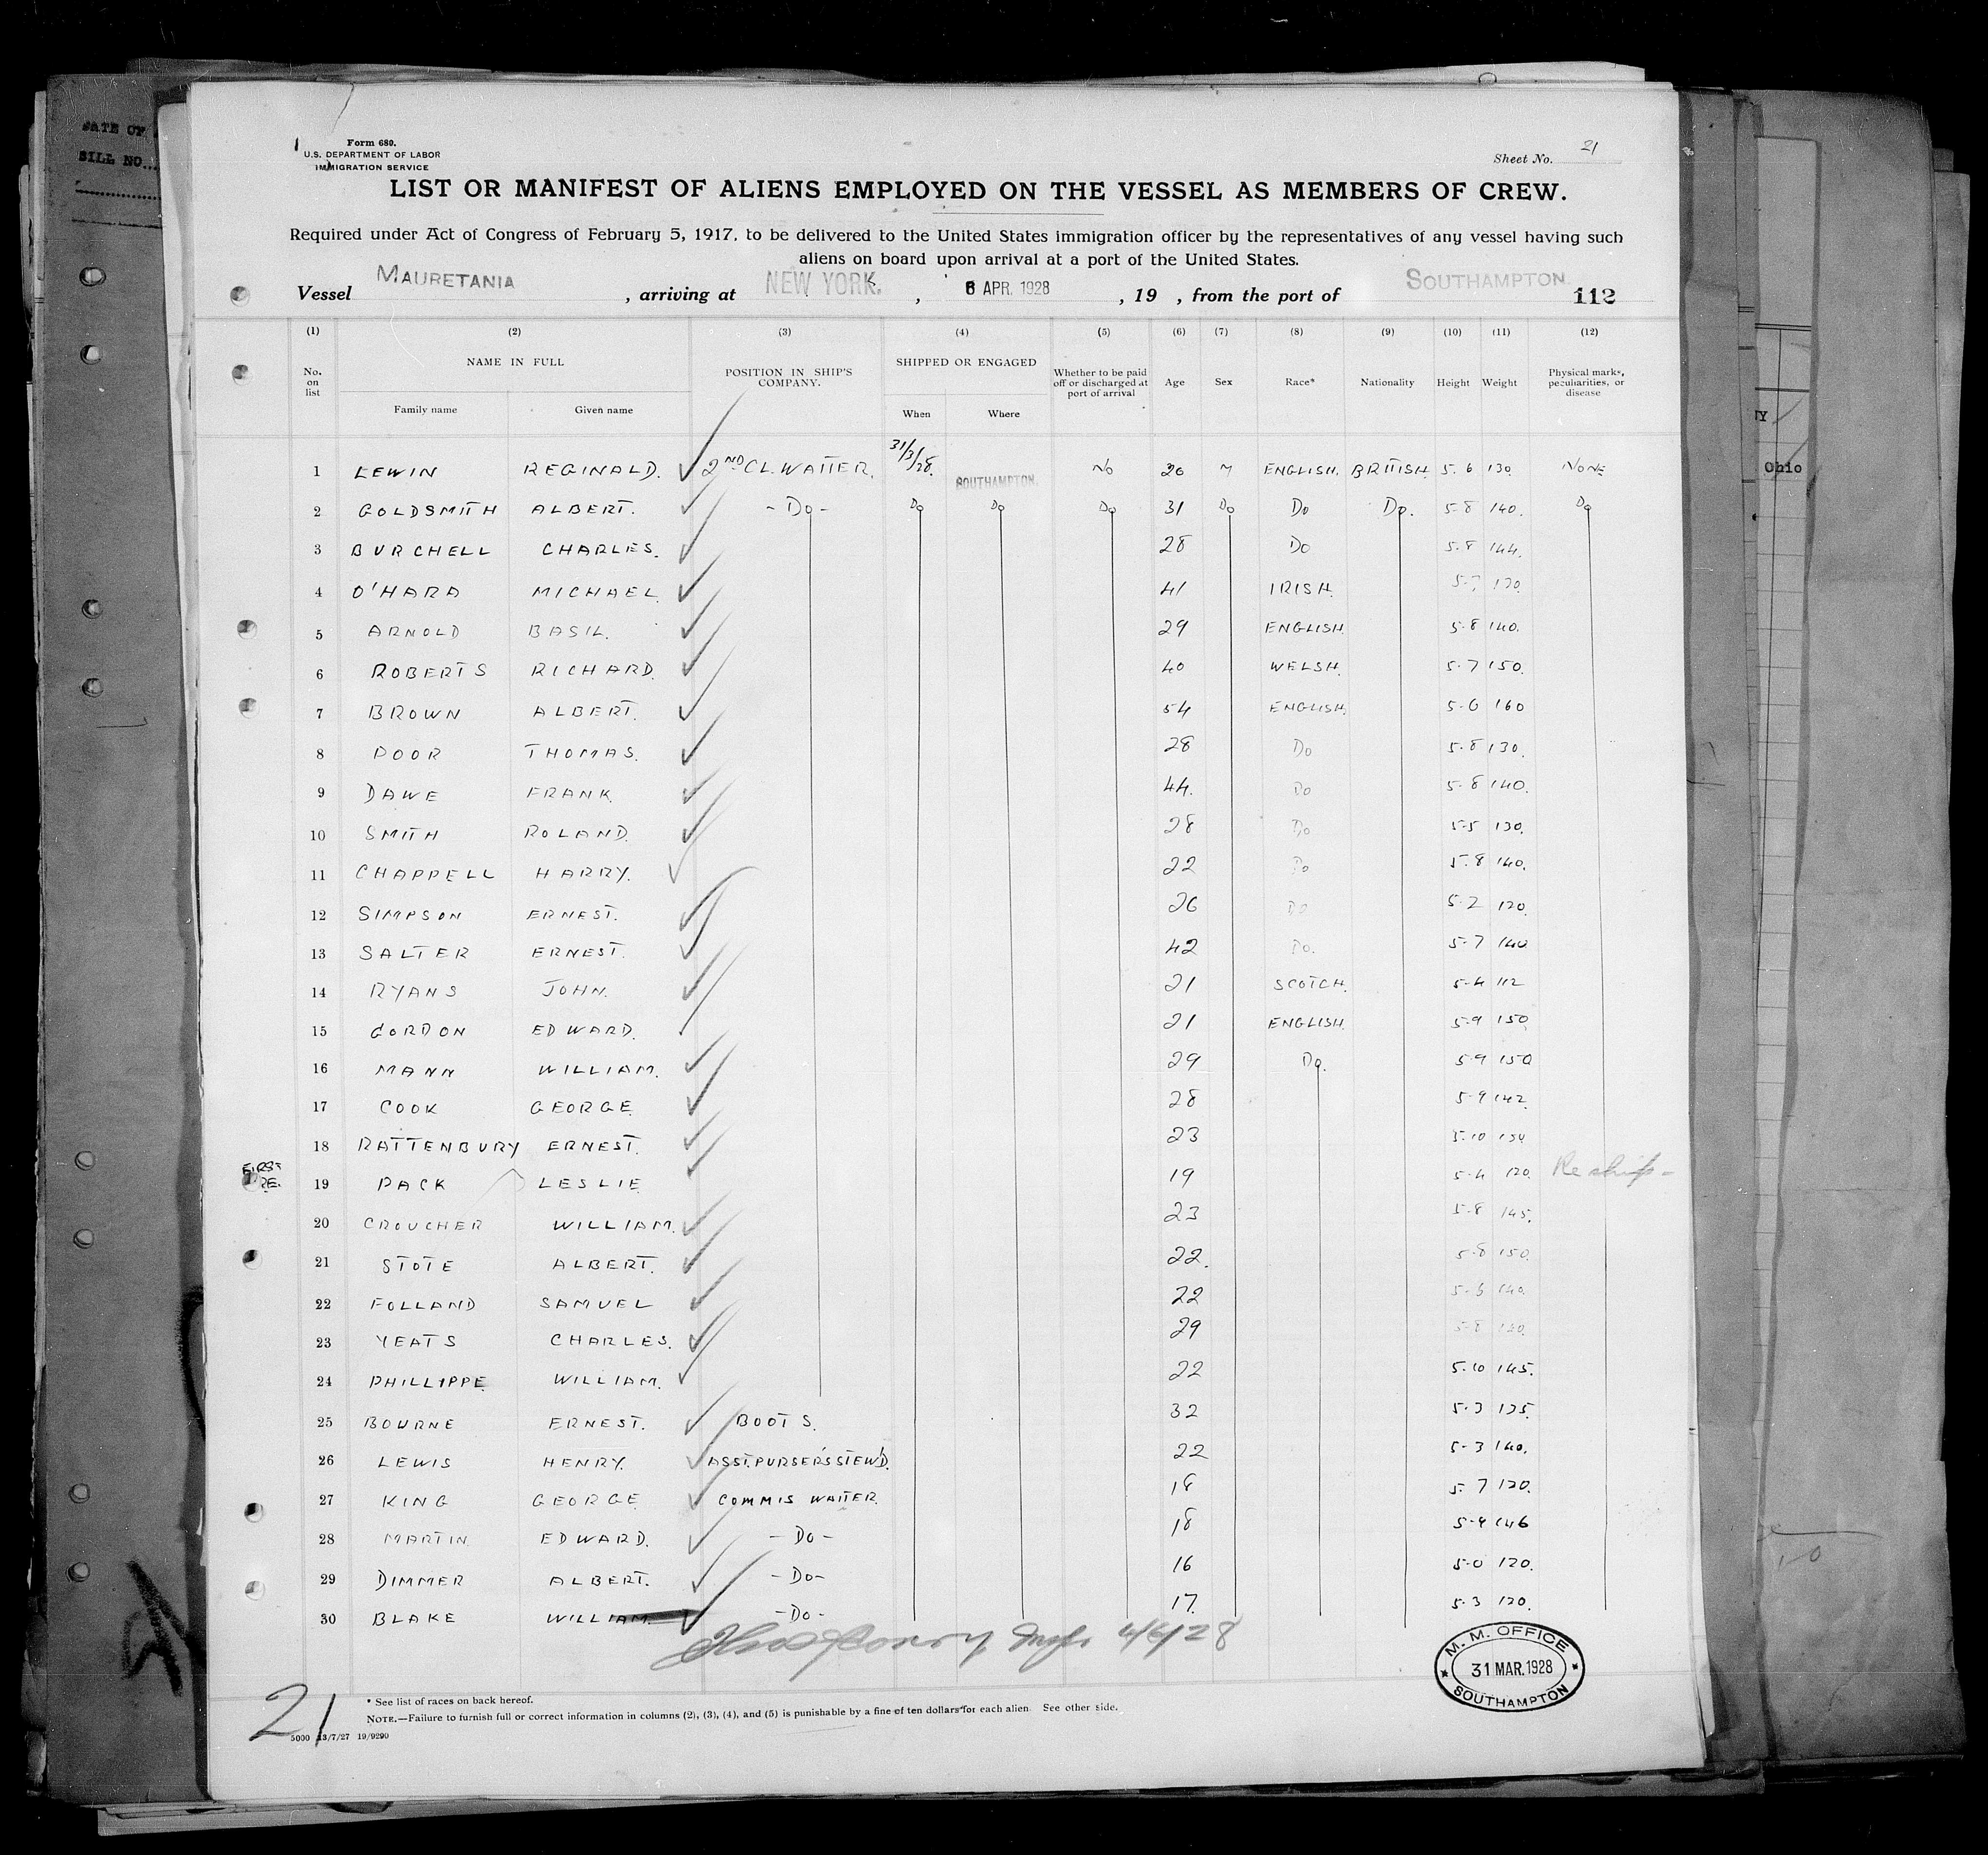 DATE OF
BILL NO...
Form 680.
U.S. DEPARTMENT OF LABOR
IMMIGRATION SERVICE
Sheet No. 21
LIST OR MANIFEST OF ALIENS EMPLOYED ON THE VESSEL AS MEMBERS OF CREW.
Required under Act of Congress of February 5, 1917, to be delivered to the United States immigration officer by the representatives of any vessel having such
aliens on board upon arrival at a port of the United States.
Vessel MAURETANIA, arriving at NEW YORK., 6 APR. 1928, 19 , from the port of SOUTHAMPTON 112
(1) (2) (3) (4) (5) (6) (7) (8) (9) (10) (11) (12)
No. on list NAME IN FULL POSITION IN SHIP'S COMPANY. SHIPPED OR ENGAGED Whether to be paid off or discharged at port of arrival Age Sex Race* Nationality Height Weight Physical marks, peculiarities, or disease
Family name Given name When Where
1 LEWIN REGINALD. 2ND CL. WAITER. 31/3/28. SOUTHAMPTON. No 20 M ENGLISH. BRITISH 5.6 130. NONE
2 GOLDSMITH ALBERT. -Do- Do Do Do 31 Do Do Do. 5-8 140. Do
3 BURCHELL CHARLES. 28 Do 5.8 144.
4 O'HARA MICHAEL. 41 IRISH. 5-7 130.
5 ARNOLD BASIL. 29 ENGLISH. 5.8 140.
6 ROBERTS RICHARD. 40 WELSH. 5.7 150.
7 BROWN ALBERT. 54 ENGLISH. 5-6 160
8 POOR THOMAS. 28 Do 5.8 130.
9 DAWE FRANK. 44. Do 5-8 140.
10 SMITH ROLAND. 28 Do 5-5 130.
11 CHAPPELL HARRY. 22 Do 5.8 140.
12 SIMPSON ERNEST. 26 Do 5-2 120.
13 SALTER ERNEST. 42 Do. 5-7 140
14 RYANS JOHN. 21 SCOTCH. 5-4 112
15 GORDON EDWARD. 21 ENGLISH. 5-9 150
16 MANN WILLIAM. 29 Do. 5-9 150
17 COOK GEORGE 28 5-9 142.
18 RATTENBURY ERNEST. 23 5.10 154
FIRST
RE.
19 PACK LESLIE 19 5-4 120. Reship-
20 CROUCHER WILLIAM. 23 5-8 145.
21 STOTE ALBERT. 22. 5-8 150.
22 FOLLAND SAMUEL 22 140.
23 YEATS CHARLES. 29 5-8
24 PHILLIPPE WILLIAM. 22 5.10 145.
25 BOURNE ERNEST. BOOTS. 32 5.3 135.
26 LEWIS HENRY. ASST. PURSER'S STEW'D. 22 5-3 140.
27 KING GEORGE COMMIS WAITER. 18 5-7 120.
28 MARTIN EDWARD. -Do- 18 5-4 146
29 DIMMER ALBERT. -Do- 16 5-0 120.
30 BLAKE WILLIAM. -Do- 17. 5.3 120.
4/6/28
M. M. OFFICE
31 MAR. 1928
SOUTHAMPTON
21
* See list of races on back hereof.
NOTE.—Failure to furnish full or correct information in columns (2), (3), (4), and (5) is punishable by a fine of ten dollars for each alien. See other side.
5000 13/7/27 19/9290
TY
Ohio